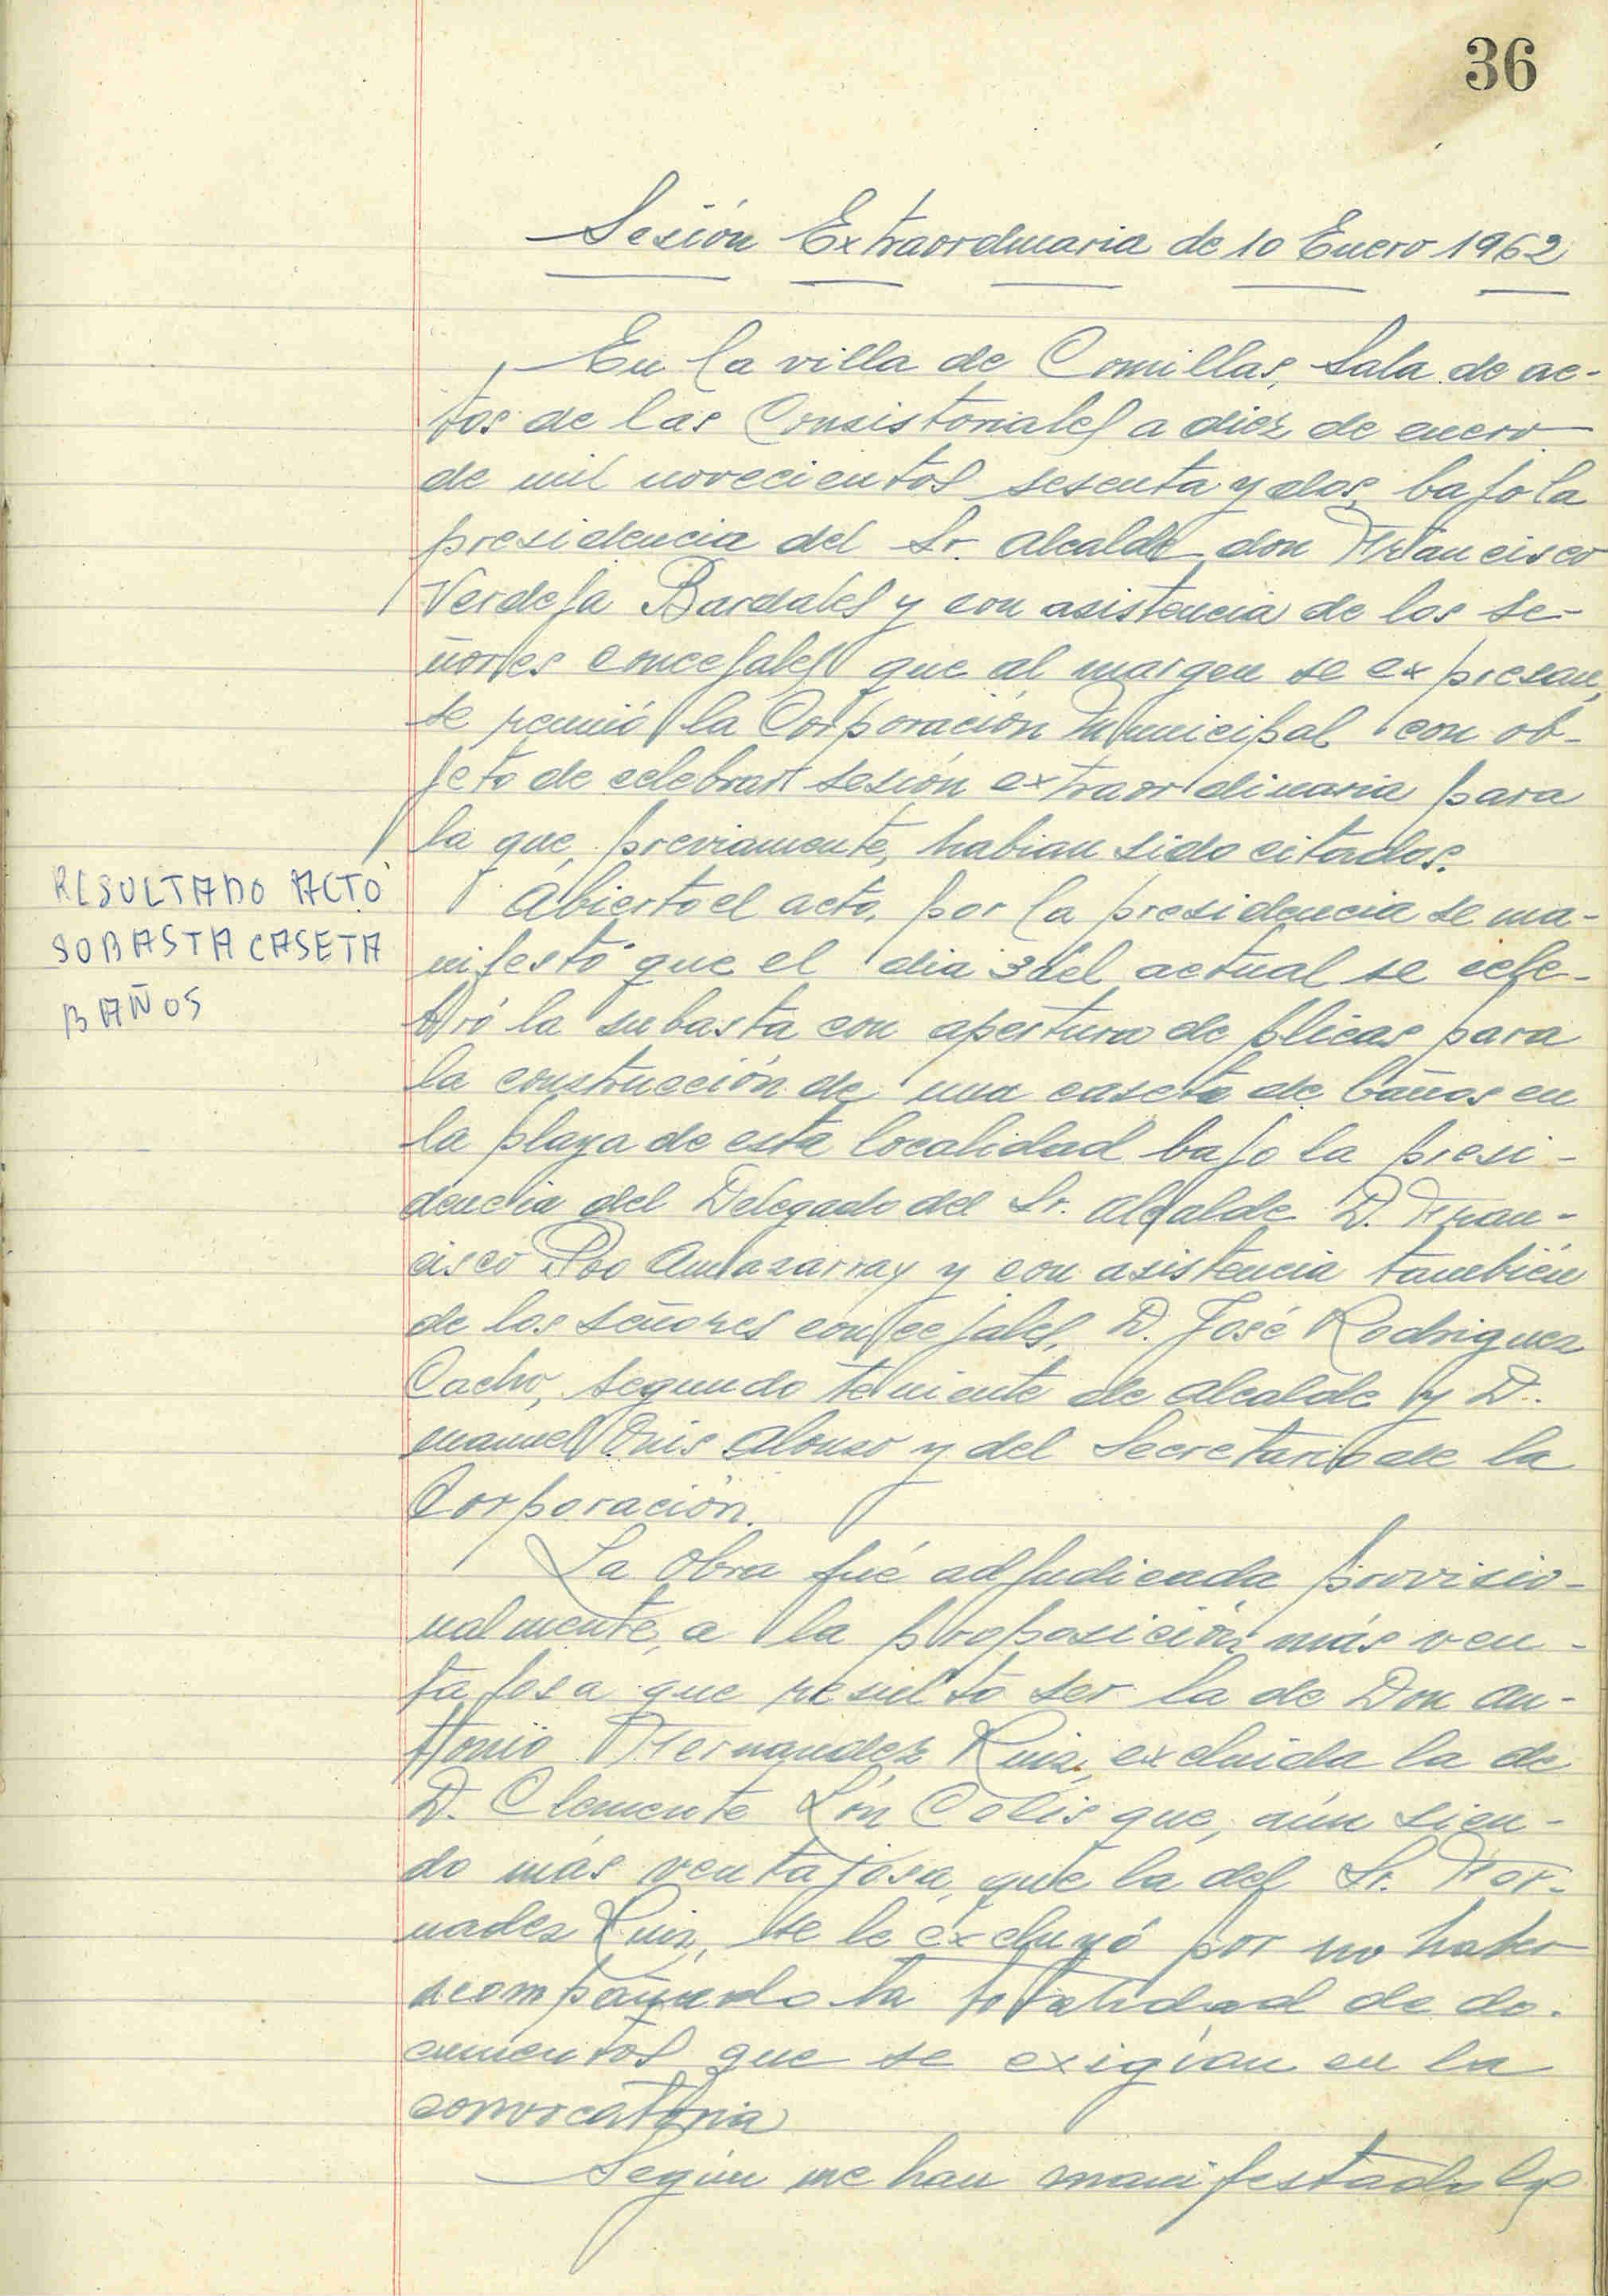 36
Sesión Extraordinaria de 10 Enero 1962
En la villa de Comillas, Sala de ac-
tos de las Consistoriales a diez de enero
de mil novecientos sesenta y dos, bajo la
presidencia del Sr. Alcalde don Francisco
Verdeja Bardales y con asistencia de los se-
ñores concejales que al margen se expresan,
se reunió la Corporación Municipal con ob-
jeto de celebrar sesión extraordinaria para
la que, previamente, habian sido citados.
RESULTADO ACTO
SOBASTA CASETA
BAÑOS
Abierto el acto, por la presidencia se ma-
nifestó que el dia 3 del actual se cele-
bró la subasta con apertura de plicas para
la construcción de una caseta de baños en
la playa de esta localidad bajo la presi-
dencia del Delegado del Sr. Alcalde D. Fran-
cisco Poo y con asistencia también
de los señores concejales, D. José Rodriguez
Cacho, segundo teniente de alcalde y D.
Manuel Alonso y del Secretario de la
Corporación.
La obra fué adjudicada provisio-
nalmente, a la proposición más ven-
tajosa que resultó ser la de Don An-
tonio Hernandez Ruiz, excluida la de
D. Clemente que, aún sien-
do más ventajosa, que la del Sr. Her-
nadez Ruiz, se le excluyó por no haber
acompañado la totalidad de do-
cumentos que se exigian en la
convocatoria
Según me han manifestado